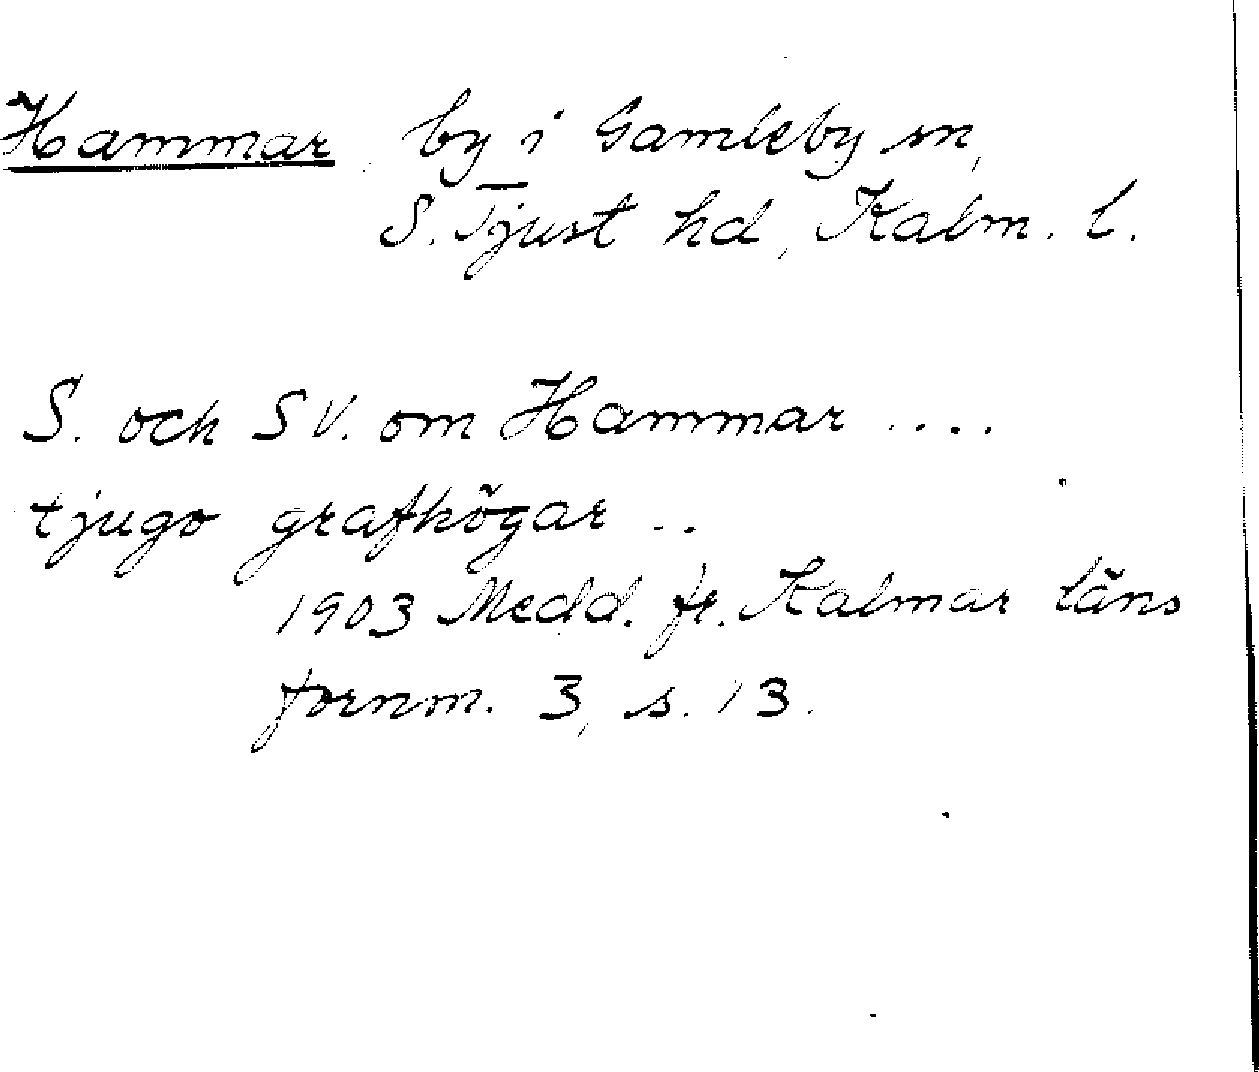 Hammar by i Gamleby sn,
S. Tjust hd, Kalm. l.
S. och SV. om Hammar ....
tjugo grafhögar ..
1903 Medd. fr. Kalmar läns
fornm. 3, s. 13.